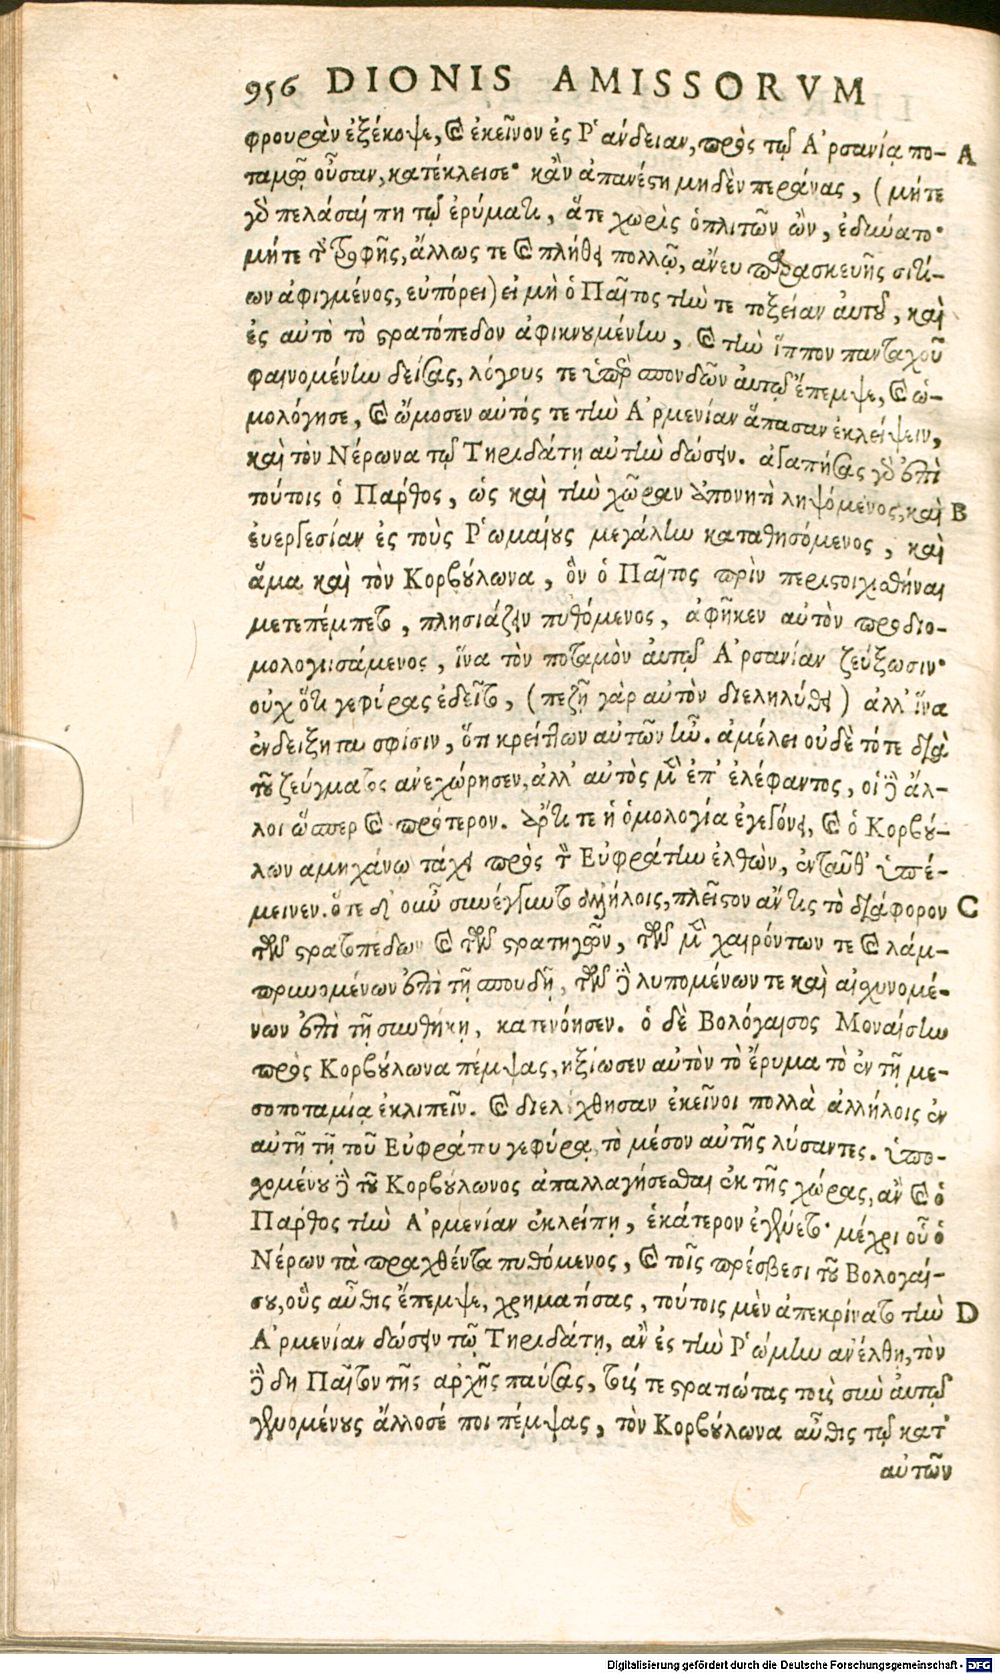 956 DIONIS AMISSORVM
φρουρὰν ἐξέκοψε, καὶ ἐκεῖνον ἐς Ῥάνδειαν, πρὸς τῷ Ἀρσανίᾳ πο- A
ταμῷ οὖσαν, κατέκλεισε· κἂν ἀπανέστη μηδὲν περάνας, (μήτε
γὸ πελάσαι πῃ τῷ ἐρύματι, ἅτε χωρὶς ὁπλιτῶν ὢν, ἐδύνατο·
μήτε τῆς τροφῆς, ἄλλως τε καὶ πλήθει πολλῷ, ἄνευ παρασκευῆς σιτί-
ων ἀφιγμένος, εὐπόρει) εἰ μὴ ὁ Παῖτος τήν τε τοξείαν αὐτοῦ, καὶ
ἐς αὐτὸ τὸ στρατόπεδον ἀφικνουμένην, καὶ τὴν ἵππον πανταχοῦ
φαινομένην δείσας, λόγους τε ὑπὲρ σπονδῶν αὐτῷ ἔπεμψε, καὶ ὡ-
μολόγησε, καὶ ὤμοσεν αὐτός τε τὴν Ἀρμενίαν ἅπασαν ἐκλείψειν,
καὶ τὸν Νέρωνα τῷ Τηριδάτῃ αὐτὴν δώσειν. ἀγαπήσας γὸ ἐπὶ
τούτοις ὁ Πάρθος, ὡς καὶ τὴν χῶραν ἀπονητὶ ληψόμενος, καὶ B
ἐυεργεσίαν ἐς τοὺς Ῥωμαίους μεγάλην καταθησόμενος, καὶ
ἅμα καὶ τὸν Κορβούλωνα, ὃν ὁ Παῖτος πρὶν περιστοιχισθῆναι
μετεπέμπετο, πλησιάζειν πυθόμενος, ἀφῆκεν αὐτὸν προδιο-
μολογησάμενος, ἵνα τὸν ποταμὸν αὐτῷ Ἀρσανίαν ζεύξωσιν·
οὐχ ὅτι γεφύρας ἐδεῖτο, (πεζῇ γὰρ αὐτὸν διεληλύθει) ἀλλ' ἵνα
ἐνδείξηται σφίσιν, ὅτι κρείττων αὐτῶν ἦν. ἀμέλει οὐδὲ τότε διὰ
τοῦ ζεύγματος ἀνεχώρησεν, ἀλλ' αὐτὸς μὲν ἐπ' ἐλέφαντος, οἱ δὲ ἄλ-
λοι ὥσπερ καὶ πρότερον. ἄρτι τε ἡ ὁμολογία ἐγεγόνει, καὶ ὁ Κορβού-
λων ἀμηχάνῳ τάχει πρὸς τὸν Εὐφράτην ἐλθὼν, ἐνταῦθ' ὑπέ-
μεινεν. ὅτε δ' οὖν συνεγένοντο ἀλλήλοις, πλεῖστον ἄν τις τὸ διάφορον C
τῶν στρατοπέδων καὶ τῶν στρατηγῶν, τῶν μὲν χαιρόντων τε καὶ λαμ-
πρυνομένων ἐπὶ τῇ σπουδῇ, τῶν δὲ λυπομένων τε καὶ αἰσχυνομέ-
νων ἐπὶ τῇ συνθήκῃ, κατενόησεν. ὁ δὲ Βολόγαισος Μοναίσην
πρὸς Κορβούλωνα πέμψας, ἠξίωσεν αὐτὸν τὸ ἔρυμα τὸ ἐν τῇ με-
σοποταμίᾳ ἐκλιπεῖν. καὶ διελέχθησαν ἐκεῖνοι πολλὰ ἀλλήλοις ἐν
αὐτῇ τῇ τοῦ Εὐφράτου γεφύρᾳ, τὸ μέσον αὐτῆς λύσαντες. ὑπο-
σχομένου δὲ τοῦ Κορβούλωνος ἀπαλλαγήσεσθαι ἐκ τῆς χώρας, ἂν καὶ ὁ
Πάρθος τὴν Ἀρμενίαν ἐκλείπῃ, ἑκάτερον ἐγένετο· μέχρι οὗ ὁ
Νέρων τὰ πραχθέντα πυθόμενος, καὶ τοῖς πρέσβεσι τοῦ Βολογαί-
σου, οὓς αὖθις ἔπεμψε, χρηματίσας, τούτοις μὲν ἀπεκρίνατο τὴν D
Ἀρμενίαν δώσειν τῷ Τηριδάτῃ, ἂν ἐς τὴν Ῥώμην ἀνέλθῃ, τὸν
δὲ δὴ Παῖτον τῆς ἀρχῆς παύσας, τούς τε στρατιώτας τοὺς σὺν αὐτῷ
γενομένους ἄλλοσέ ποι πέμψας, τὸν Κορβούλωνα αὖθις τῷ κατ'
αὐτῶν
Digitalisierung gefördert durch die Deutsche Forschungsgemeinschaft - DFG